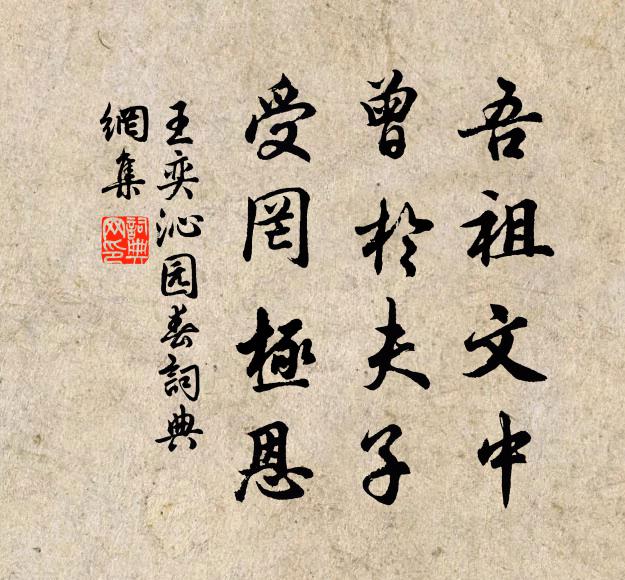 吾祖文中
曾於夫子
受罔極恩
王奕沁园春詞典
網集
詞典
网印